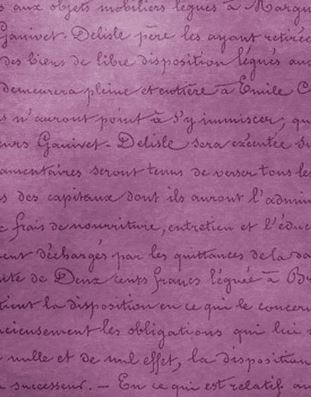 aux objets mobiliers légués à Margu
Ganivet-Delisle père les ayant retirées
des biens de libre disposition légués au
demeurera pleine et entière à Emile C
s n'auront point à s'y immiscer, qu
eurs Ganivet-Delisle sera exécutée su
amentaires seront tenus de verser tous les
s des capitaux dont ils auront l'admin
c frais de nourriture, entretien et l'éduc
ent déchargés par les quittances de la da
uite de Deux cents francs légué à Br
tient la disposition en ce qui le concern
ncieusement les obligations qui lui s
nulle et de nul effet, la disposition
successeur. — En ce qui est relatif au